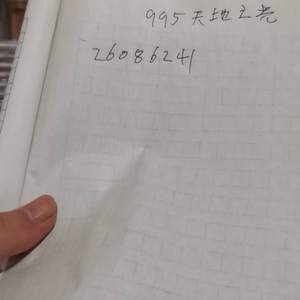 995天地之亮
26086241